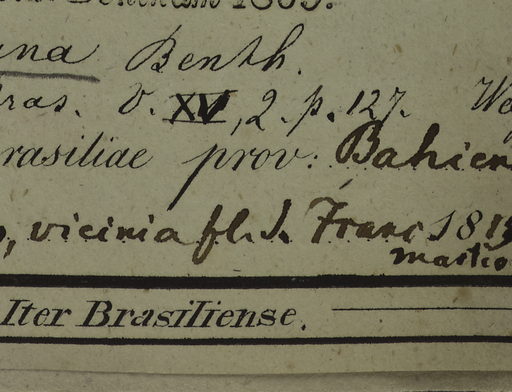 1869.
ana Benth.
Bras. V. XV, 2. p. 127.
rasiliae prov: Bahien
, vicinia fl. S. Franc 1819
Martio
Iter Brasiliense.